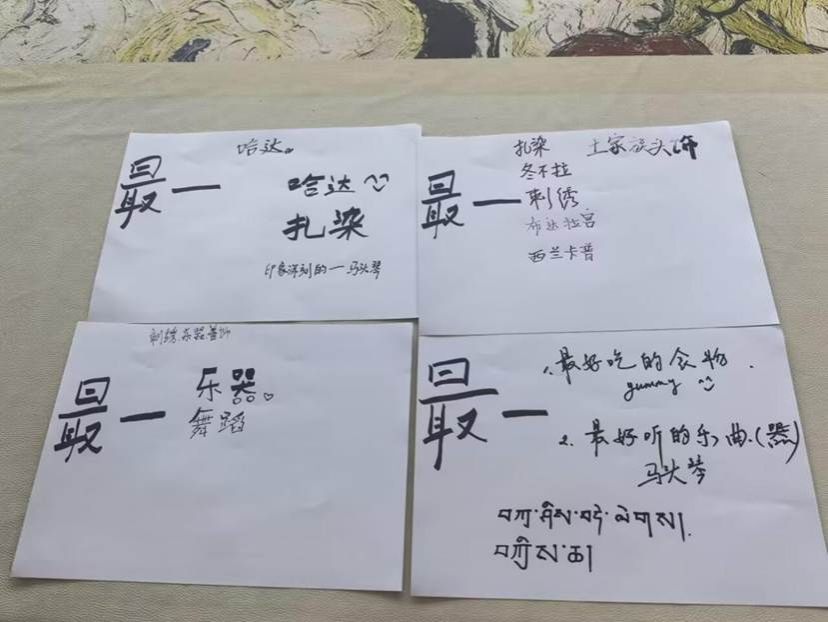 哈达。
最一
哈达
扎染
印象深刻的一马头琴
扎染 土家族头饰
冬不拉
最一刺绣
布达拉宫
西兰卡普
刺绣.乐器.着饰
最一
乐器。
舞蹈
最一
1.最好吃的食物.
yummy
2.最好听的乐曲.(器)
马头琴
བཀྲ་ཤིས་བདེ་ལེགས།